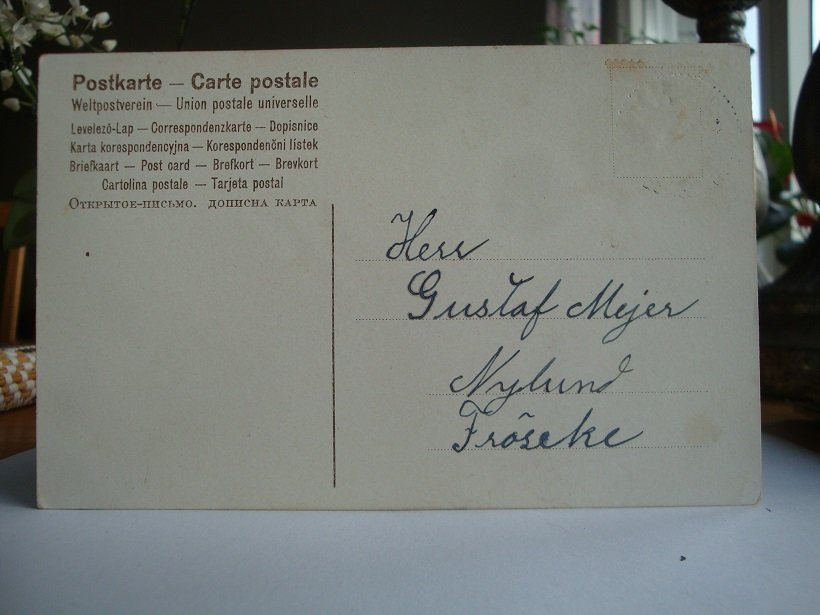 Postkarte — Carte postale
Weltpostverein — Union postale universelle
Levelező-Lap — Correspondenzkarte — Dopisnice
Karta korespondencyjna — Korespondenční lístek
Briefkaart — Post card — Brefkort — Brevkort
Cartolina postale — Tarjeta postal
Открытое-письмо. дописна карта
Herr
Gustaf Mejer
Nylund
Fröseke